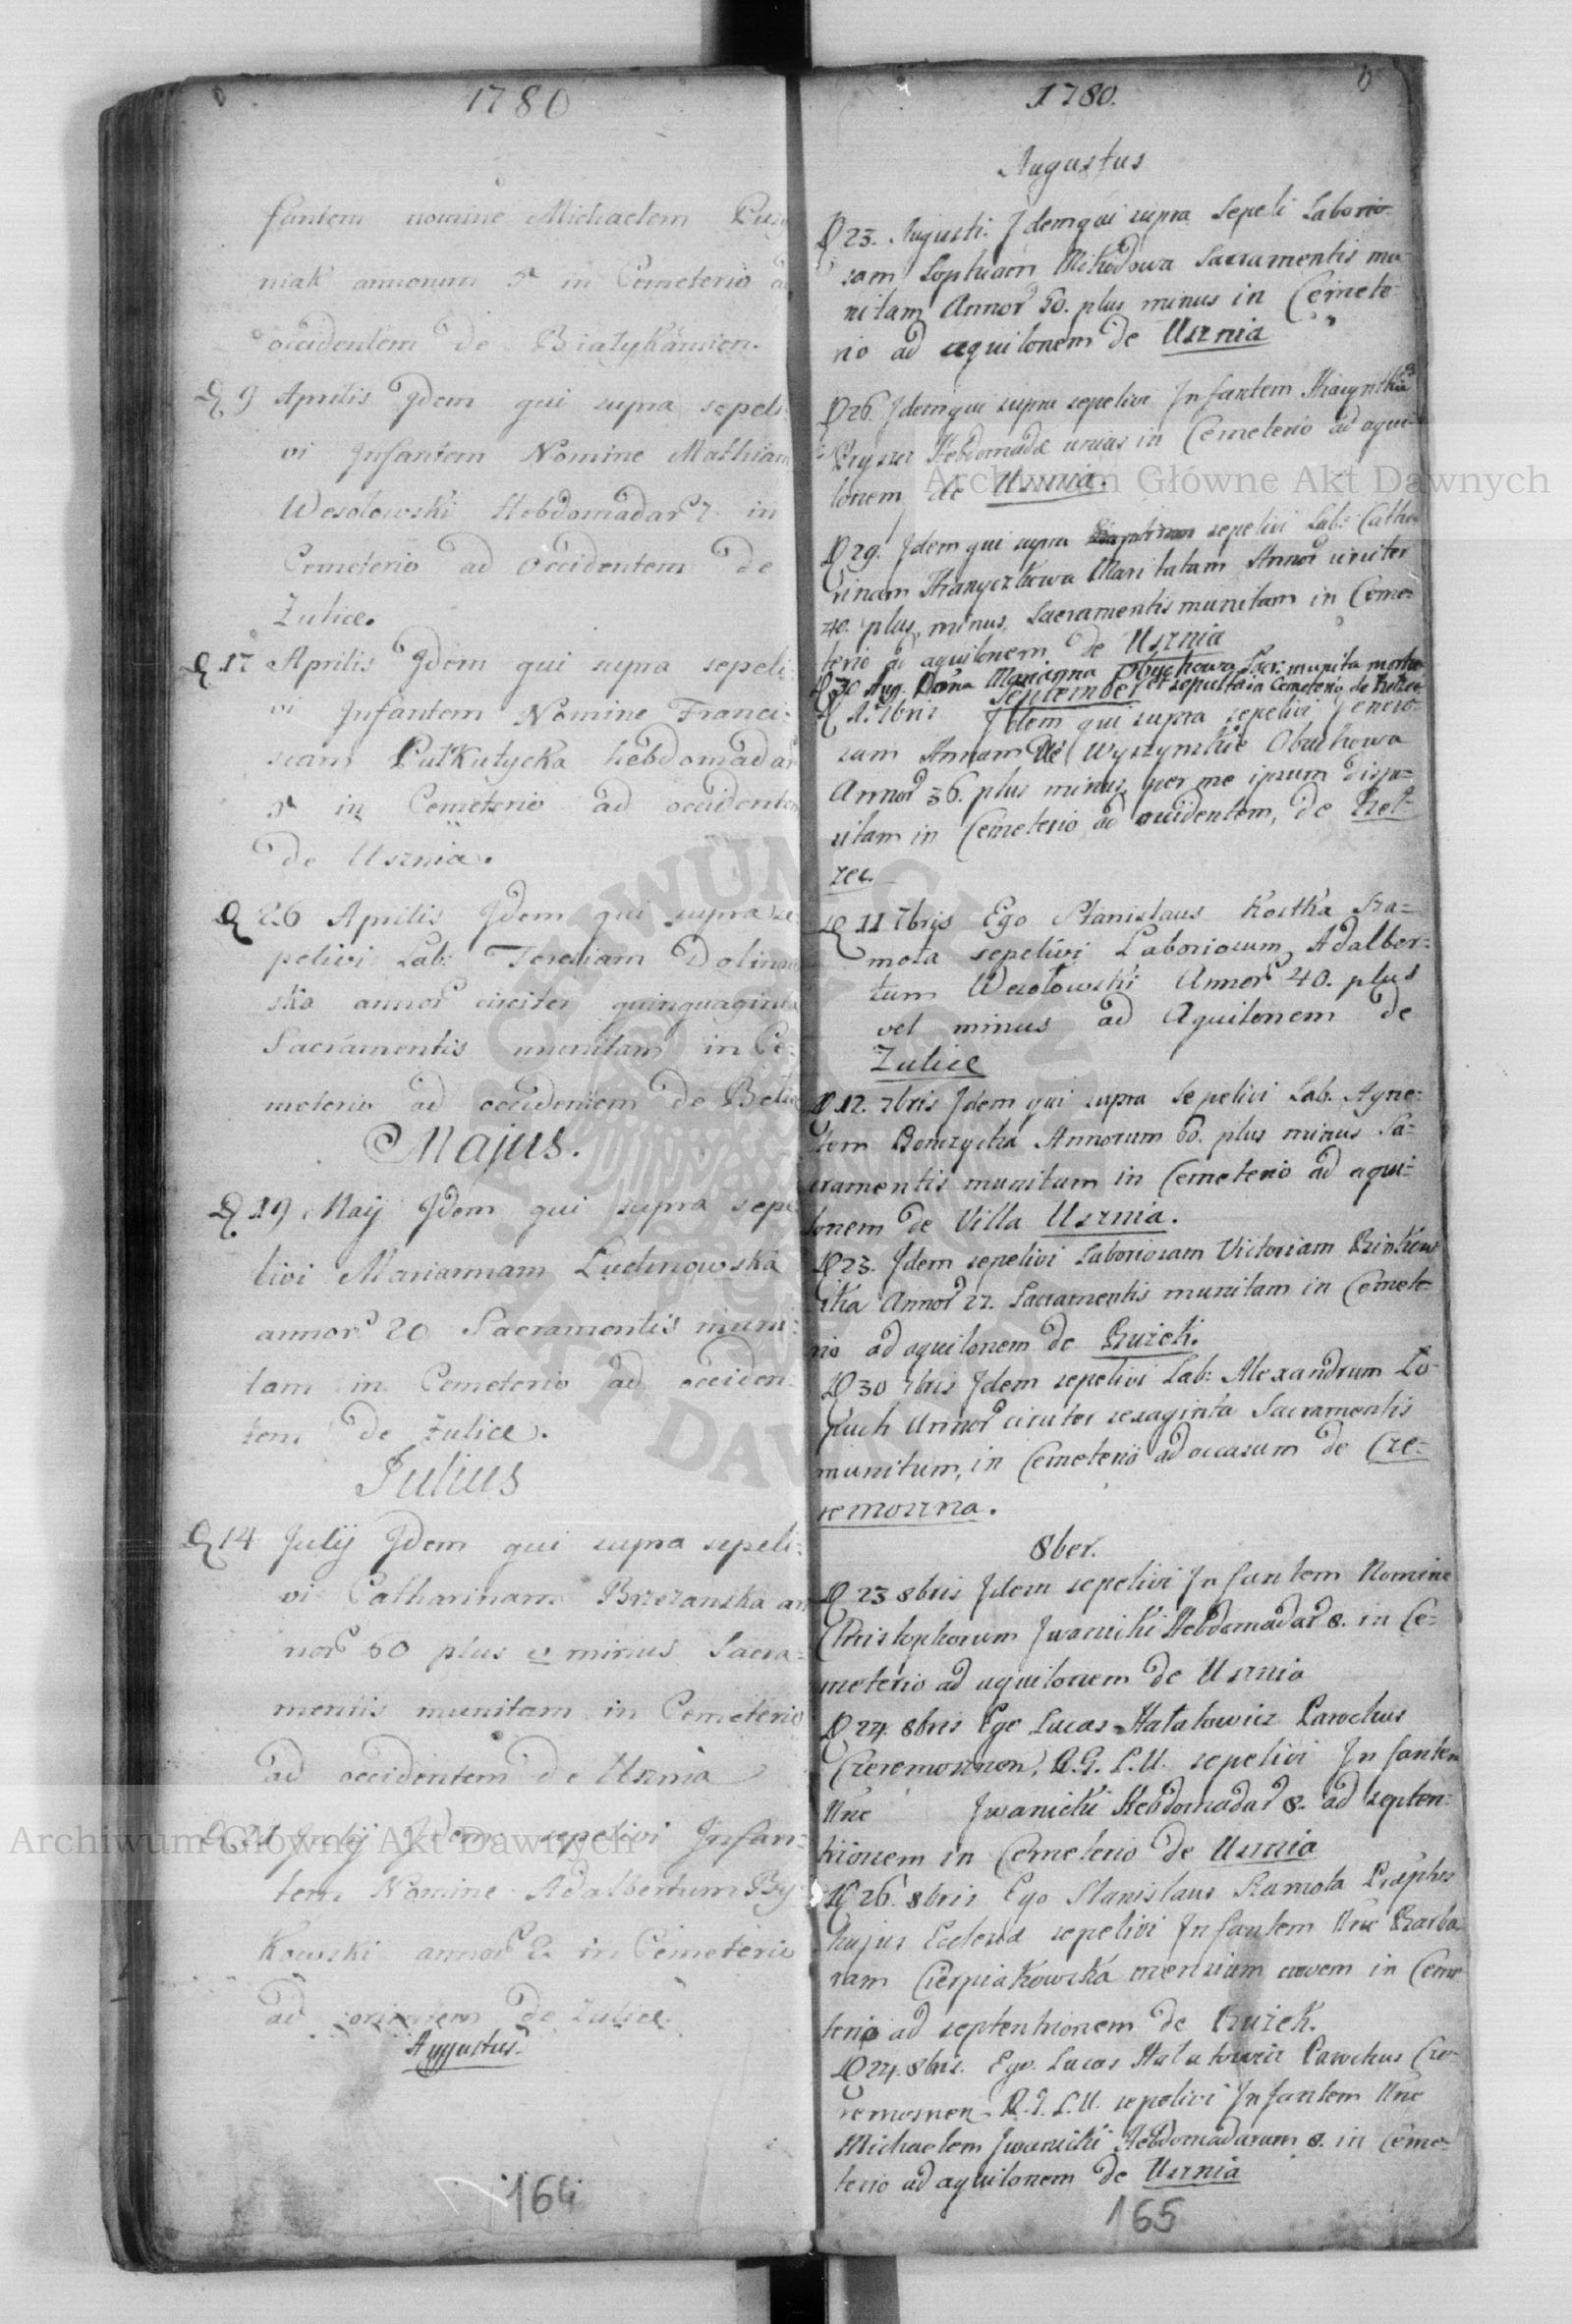 1780
fantem nomine Michaelem
niak annorum in Cemeterio
occidentem de Białykamien.
D 9 Aprilis Idem qui supra sepeli
vi Infantem Nomine Mathiam
Wesolowski Hebdomadar 7 in
Cemeterio ad Occidentem de
Zulice.
D 17 Aprilis Idem qui supra sepeli
vi Infantem Nomine Franci:
scam Pułkutycka hebdomadar
in Cemeterio ad occidentem
de Usznia.
D 26 Aprilis Idem qui supra se
pelivi Lab: Teresiam Dolinow
ska annor circiter quinquaginta
Sacramentis munitam in Ce:
meterio ad occidentem de
Majus.
D 19 Maij Idem qui supra sepe
livi Mariannam Ludinowska
annor 20 Sacramentis muni:
tam in Cemeterio ad occiden
tem de Zulice.
Julius
D 14 Julij Idem qui supra sepeli:
vi Catharinam Brzezanska an
nor 60 plus v minus Sacra=
mentis munitam in Cemeterio
ad occidentem de Usznia
D 21 Julij Idem sepelivi Infan:
tem Nomine Adalbertum By
kowski annor 2 in Cemeterio
ad orientem de Zulice.
Augustus.
164
1780.
Augustus
D 23. Augusti. Idem qui supra Sepeli Laborio
sam Sophiam Sacramentis mu
nitam Annor 50. plus minus in Cemete
rio ad aquilonem de Usznia
D 26. Idem qui supra sepelivi Infantem
Hebdomadæ unius in Cemeterio ad aqui
lonem de Usznia.
D 29. Idem qui supra sepelivi Lab: Catha
rinam Maritatam Annor circiter
40. plus minus, Sacramentis munitam in Ceme=
terio ad aquilonem de Usznia
D 30 Aug. Marianna Sacr: munita
September et sepulta in Cemeterio de
Idem qui supra sepelivi Genero=
sam Annam de Wyszynskie Obuchowa
Annor 36. plus minus, per me ipsum dispo=
sitam in Cemeterio ad occidentem, de
D 11 7bris Ego Stanislaus Kostka Sra=
mota sepelivi Laboriosum Adalber=
tum Wesołowski Annor 40. plus
vel minus ad Aquilonem de
Zulice
D 12. 7bris Idem qui supra Sepelivi Lab. Agne=
tem Annorum 60. plus minus Sa=
cramentis munitam in Cemeterio ad aqui=
lonem de Villa Usznia.
D 23. Idem sepelivi Laboriosam Victoriam
Annor 27. Sacramentis munitam in Cemete=
rio ad aquilonem de Buzek.
D 30 7bris Idem sepelivi Lab: Alexandrum
Annor circiter sexaginta Sacramentis
munitum, in Cemeterio ad occasum de Cze=
remoszna.
8ber.
D 23 8bris Idem sepelivi Infantem Nomine
Christophorum Iwanicki Hebdomadar 8. in Ce=
meterio ad aquilonem de Usznia
D 24. 8bris Ego Lucas Hałatowicz Parochus
Czeremosznen. R.G.L.U. sepelivi Infantem
Nne Iwanicki Hebdomadar 8. ad septen=
trionem in Cemeterio de Usznia
D 26. 8bris Ego Stanislaus Sramota
hujus Ecclesiæ sepelivi Infantem Nne Barba
ram Cierpiakowska mensium novem in Ceme
terio ad septentrionem de Buzek.
D 24. 8bris. Ego. Lucas Hałatowicz Parochus Cze=
remosznen R.G.L.U. sepelivi Infantem Nne
Michaelem Iwanicki Hebdomadarum 8. in Ceme=
terio ad aquilonem de Usznia
165
Archiwum Główne Akt Dawnych
Archiwum Główne Akt Dawnych